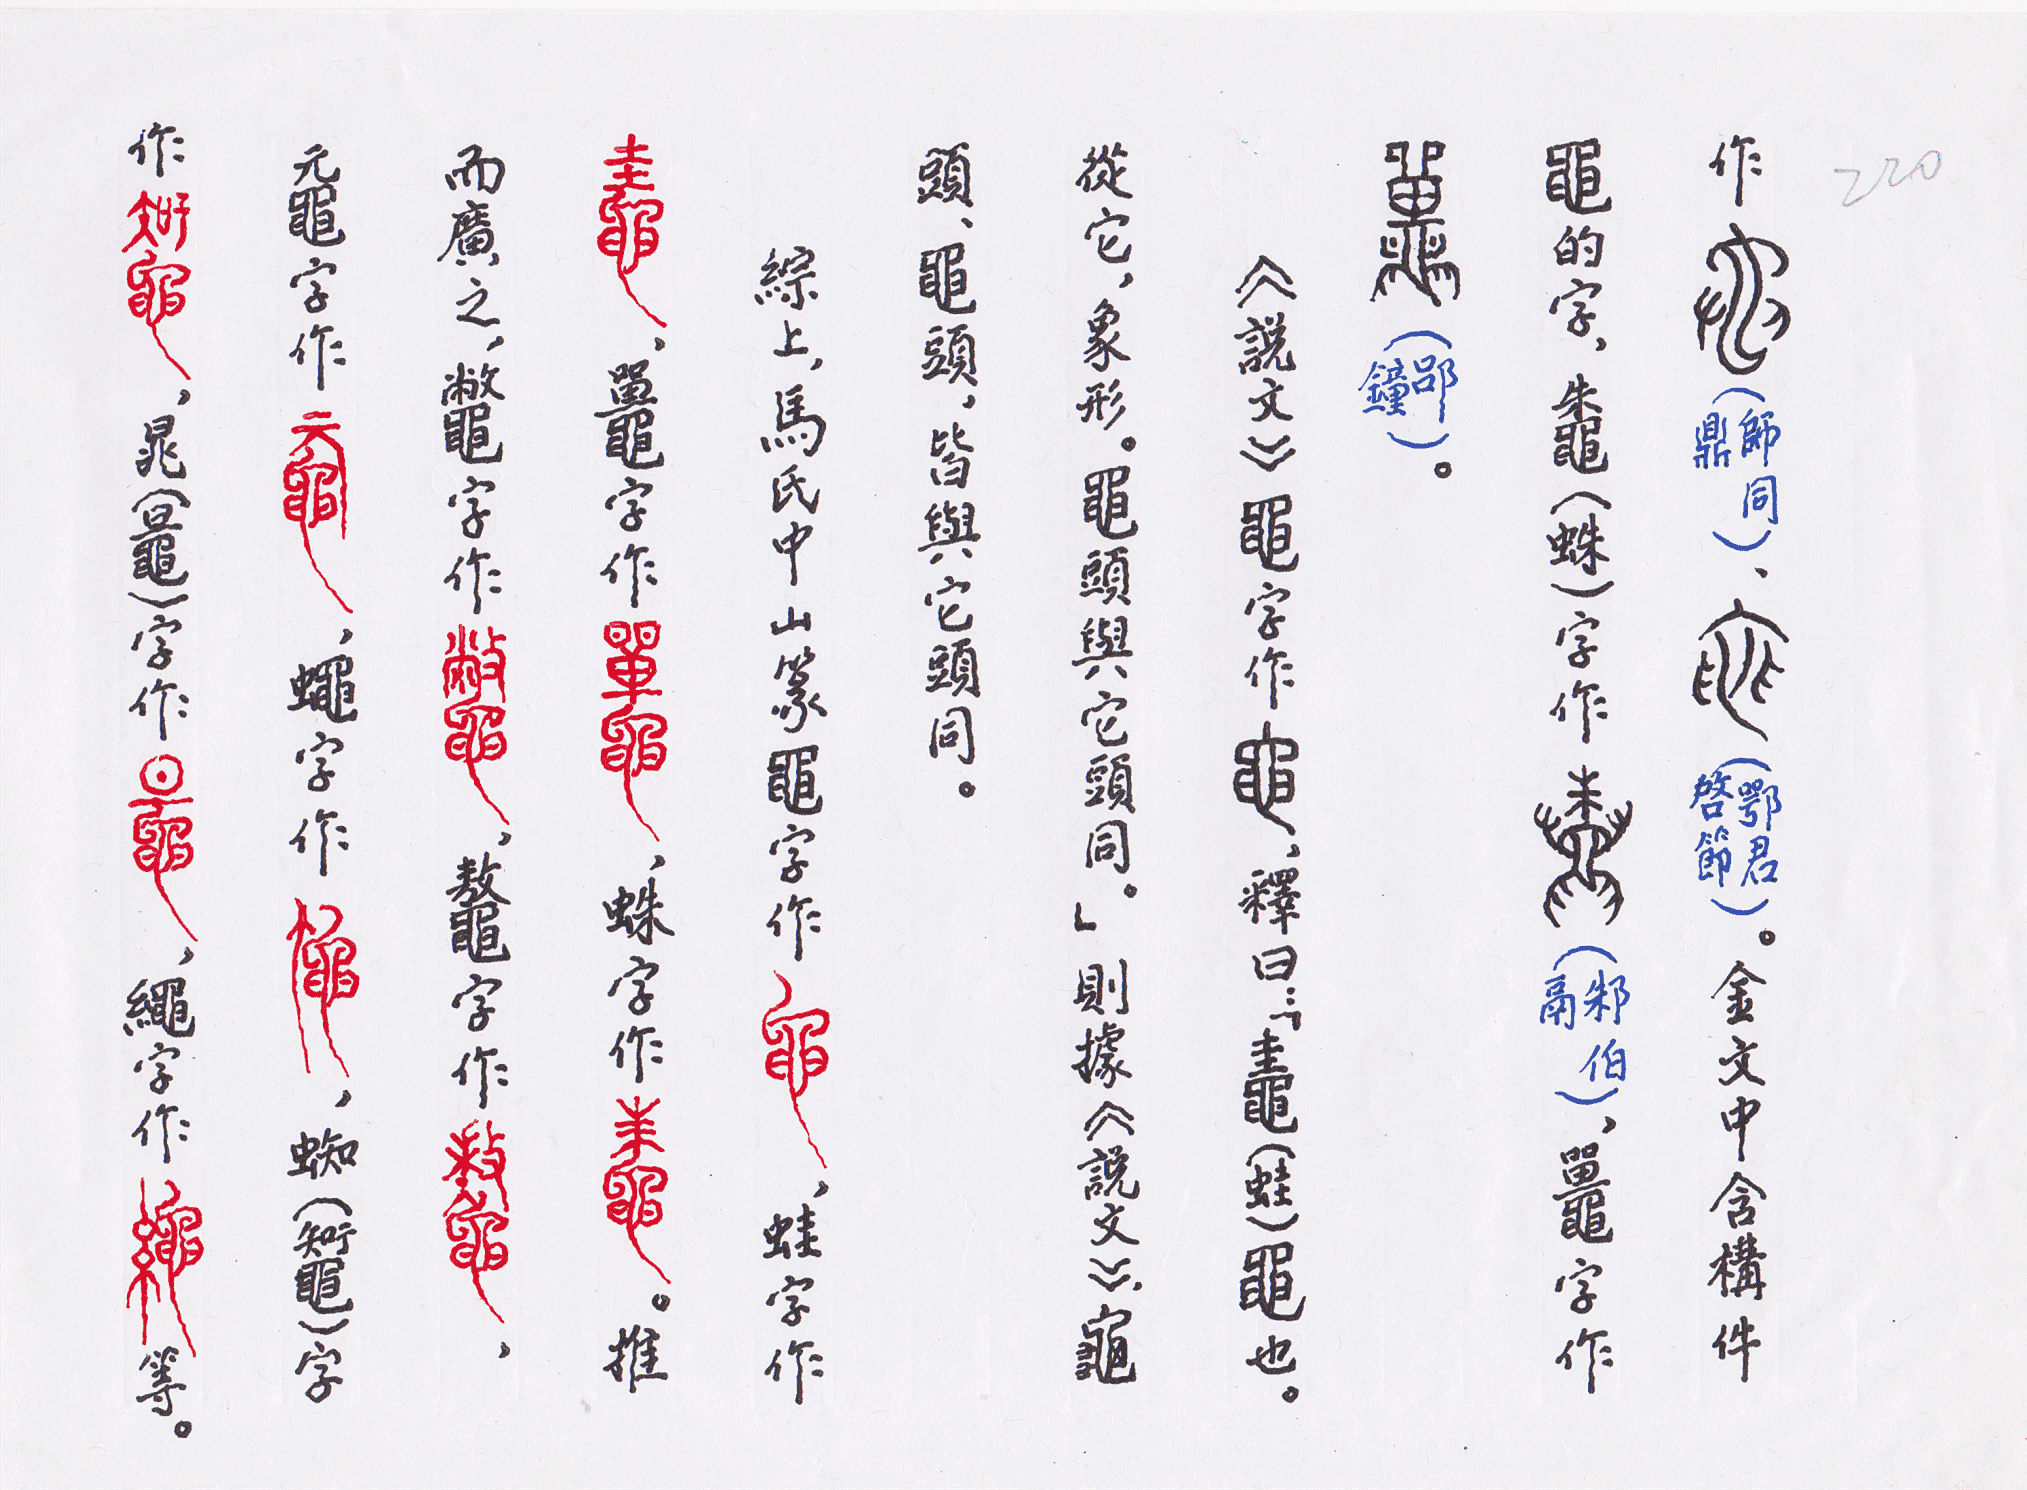 220
作（師同鼎）、（鄂君啓節）。金文中含構件
黽的字，鼄（蛛）字作（邾伯鬲），鼉字作
（郘鐘）。
《說文》黽字作，釋曰：「鼃（蛙）黽也。
從它，象形。黽頭與它頭同。」則據《說文》，龜
頭、黽頭，皆與它頭同。
綜上，馬氏中山篆黽字作，蛙字作
，鼉字作，蛛字作。推
而廣之，鼈字作，鼇字作，
黿字作，蠅字作，蜘（𪓿）字
作，鼂（鼂）字作，繩字作等。